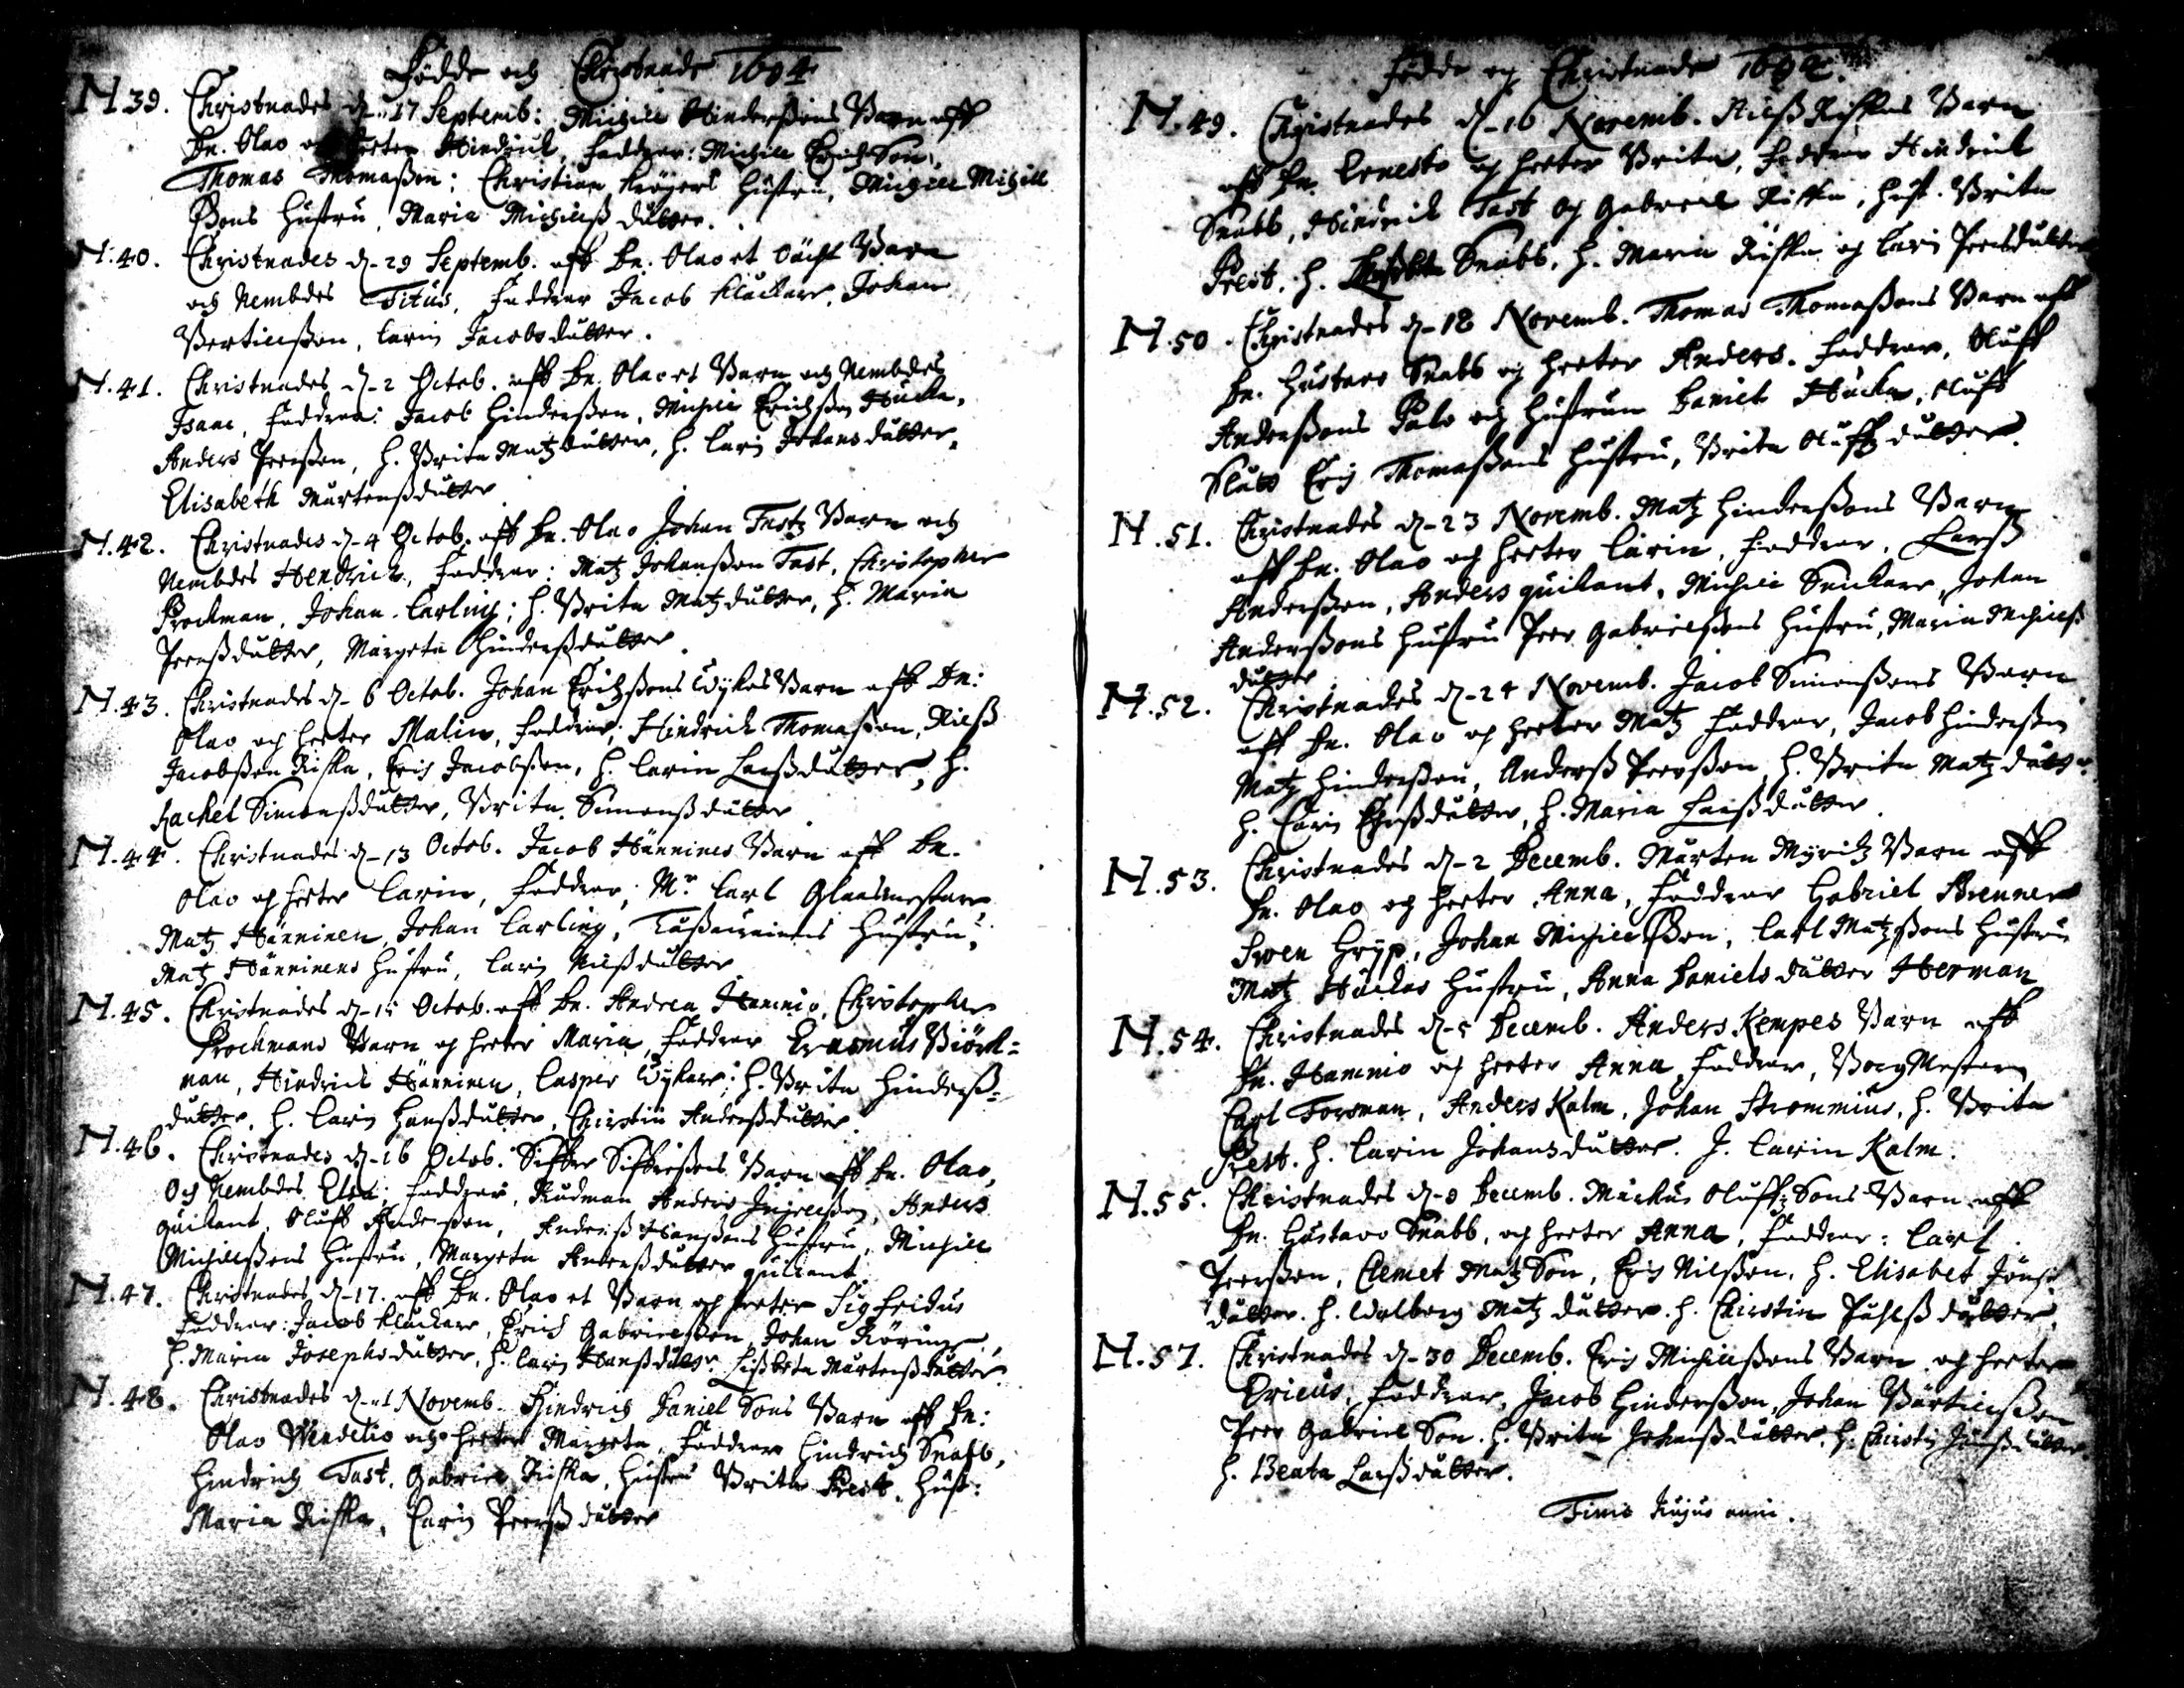 Födde och Christnade 1694
N 39. Christnades d. 17 Septemb: Michill Hinderßons Barn aff
Dn. Olao och heeter Hindrick, Faddrar: Michill Erich Son,
Thomas Thomaßon; Christian Krögers Hustru, Michill Michill
ßons Hustru, Maria Michillß dutter.
N. 40. Christnades d. 29 Septemb. aff Dn. Olao et Barn
och Nembdes Titus, Faddrar Jacob Kluckare, Johan
Bertillßon, Carin Jacobs dutter.
N. 41. Christnades d. 2 Octob. aff Dn. Olao et Barn och Nembdes
Isaac, Faddrar: Jacob Hinderßon, Michill Erichßon Hucka,
Anders Peerßon, H. Brita Matz dutter, H. Carin Johans dutter,
Elisabeth Mårtenßdutter
N. 42. Christnades d. 4 Octob. aff Dn. Olao Johan Tastz Barn och
Nembdes Hendrich, Faddrar: Matz Johanßon Tast, Christopher
Brockman, Johan Carling; H. Brita Matz dutter, H. Maria
Peerßdutter, Margeta Hinderßdutter.
N. 43. Christnades d. 6 Octob. Johan Erichßons Wykars Barn aff Dn:
Olao och heeter Malin, Faddrar; Hindrich Thomaßon, Nilß
Jacobßon Riska, Erich Jacobßon, H. Carin Larßdutter, H.
Rachel Simonßdutter, Brita Simonßdutter
N. 44. Christnades d. 13 Octob. Jacob Hänninens Barn aff Dn.
Olao och heeter Carin, Faddrar; Mr Carl Glaasmestare
Matz Hänninen, Johan Carling, Hustru,
Matz Hänninens Hustru, Carin Nilßdutter
N. 45. Christnades d. 15 Octob. aff Dn. Andrea Hamnio, Christopher
Brockmans Barn och heeter Maria, Faddrar Erasmus Biörk=
man, Hindrich Hänninen, Casper Wykare; H. Brita Hinderß=
dutter, H. Carin Hanßdutter, Christin Anderßdutter.
N. 46. Christnades d. 16 Octob. Siffre Siffreßons Barn aff Dn. Olao,
Och Nembdes Elsa; Faddrar, Rudman Anders Ingelßon, Anders
Quikant, Oluff Anderßon, Anders Hanßons Hustru, Michill
Michillßons Hustru, Margeta Anderßdutter Quikant
N. 47. Christnades d. 17. aff Dn. Olao et Barn och heeter Sigfridus
Faddrar: Jacob Kluckare, Erich Gabrielßon, Johan Röring,
H. Maria Josephs dutter, H. Carin Hanßdutter, Lißbeta Mårtenßdutter
N. 48. Christnades d. 1 Novemb. Hindrich Daniel Sons Barn aff Dn:
Olao Wendelio och heeter Margeta, Faddrar Hindrich Snabb,
Hindrich Tast, Gabriel Riska, Hustru Brita Prest, Hust:
Maria Riska, Carin Peerßdutter
Födde och Christnade 1694.
N. 49. Christnades d. 16 Novemb. Nilß Riskas Barn
aff Dn. Ernesto och heeter Brita, Faddrar Hindrich
Snabb, Hindrich Tast och Gabriel Riska, Hust. Brita
Prest, H. Lißbeta Snabb, H. Maria Riska och Carin Peersdutter
N. 50. Christnades d. 18 Novemb. Thomas Thomaßons Barn aff
Dn. Gustavo Snabb och heeter Anders. Faddrar, Oluff
Anderßons Palo och Hustrun Daniel Hucka, Oluff
Slutt Erich Thomaßons Hustru, Brita Oluffz dutter.
N. 51. Christnades d. 23 Novemb. Matz Hinderßons Barn
aff Dn. Olao och heeter Carin, Faddrar, Larß
Anderßon, Anders Quikant, Michill Snickare, Johan
Anderßons Hustru Peer Gabrielßons Hustru, Maria Michillß
dutter
N. 52. Christnades d. 24 Novemb. Jacob Simonßons Barn
aff Dn. Olao och heeter Matz Faddrar, Jacob Hinderßon
Matz Hinderßon, Anderß Peerßon, H. Brita Matz dutter
H. Carin dutter, H. Maria Larßdutter.
N. 53. Christnades d. 2 Decemb. Mårten Myritz Barn aff
Dn. Olao och heeter Anna, Faddrar Gabriel Brenner
Swen Gryp, Johan Michillßon, Carl Matzßons Hustru
Matz Huckas Hustru, Anna Daniels dutter Herman
N. 54. Christnades d. 5 Decemb. Anders Kempes Barn aff
Dn. Hamnio och heeter Anna, Faddrar, BorgMestare
Carl Forsman, Anders Kalm, Johan Strommius, H. Brita
Prest. H. Carin Johans dutter. J. Carin Kalm.
N. 55. Christnades d. 8 Decemb. Markus Oluffz Sons Barn aff
Dn. Gustavo Snabb, och heeter Anna, Faddrar: Carl
Peerßon, Clemet Matz Son, Erich Nilßon, H. Elisabet Jönß
dutter. H. Walborg Matz dutter. H. Christin Påhlß dutter.
N. 57. Christnades d. 30 Decemb. Erich Michillßons Barn och heeter
Ericus, Faddrar, Jacob Hinderßon, Johan Bärtillßon
Peer Gabriel Son. H. Brita Johanßdutter, H. Christin Jönßdutter.
H. Beata Larßdutter.
Finis hujus anni.